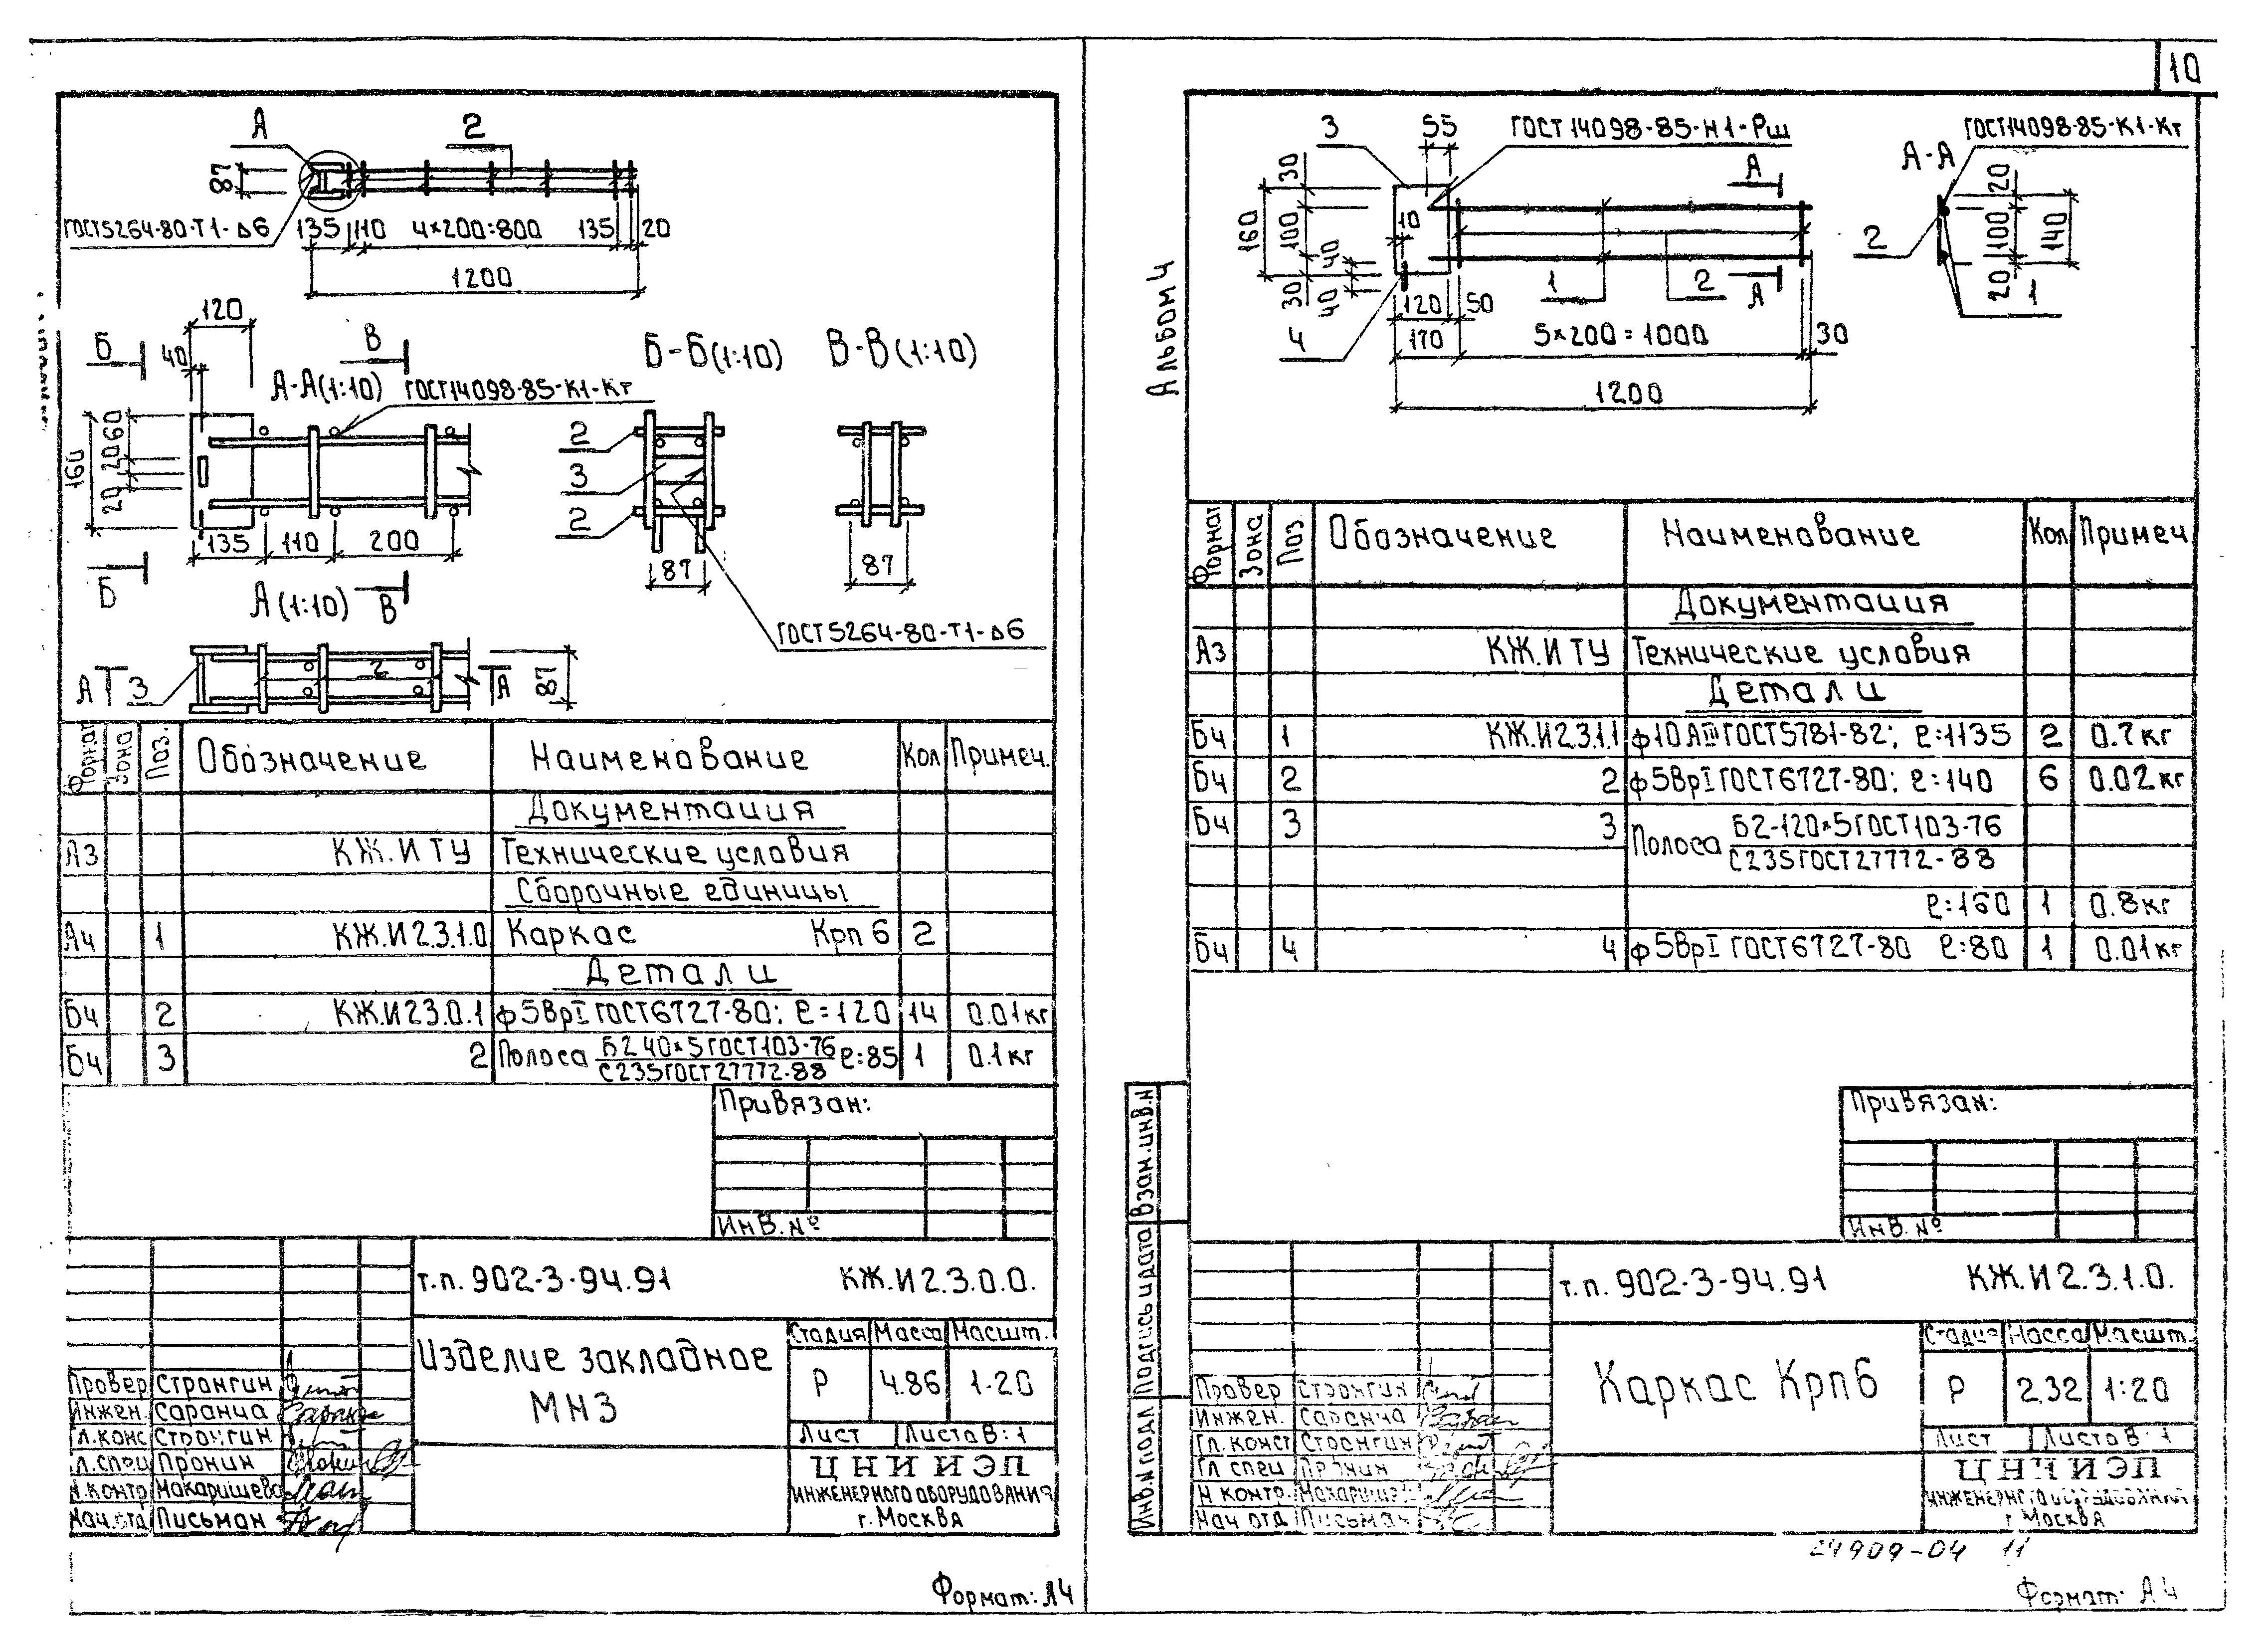 10
А
2
87
ГОСТ5264-80-Т1-Δ6
135 110 4×200=800 135 20
1200
120
Б
В
40
А-А(1:10)
ГОСТ14098-85-К1-Кт
Б-Б(1:10)
В-В(1:10)
160
60
20
20
2
3
2
135 110 200
87
87
Б
А(1:10)
В
ГОСТ5264-80-Т1-Δ6
А
3
2
А
87
Формат Зона Поз. Обозначение Наименование Кол Примеч.
Документация
А3 КЖ.И ТУ Технические условия
Сборочные единицы
А4 1 КЖ.И2.3.1.0 Каркас Крп 6 2
Детали
Бч 2 КЖ.И2.3.0.1 ф5ВрI ГОСТ6727-80; ℓ=120 14 0.01кг
Бч 3 2 Полоса Б2 40×5 ГОСТ103-76 ℓ=85 1 0.1кг
С235ГОСТ27772-88
Привязан:
Инв. №
т.п. 902-3-94.91 КЖ.И2.3.0.0.
Изделие закладное
МН3
Стадия Масса Масшт.
Р 4.86 1:20
Лист Листов: 1
ЦНИИЭП
ИНЖЕНЕРНОГО ОБОРУДОВАНИЯ
г. Москва
Провер Стронгин
Инжен. Саранча
Гл.конс Стронгин
Гл.спец Пронин
Н.контр Макаришева
Нач.отд Письман
Формат: А4
Альбом 4
3
55
ГОСТ14098-85-Н1-Рш
ГОСТ14098-85-К1-Кт
А
А-А
30
160
100
30
10
40
40
120
50
170
5×200=1000
30
1200
4
1
2
А
2
20
100
20
140
1
Формат Зона Поз. Обозначение Наименование Кол Примеч
Документация
А3 КЖ.И ТУ Технические условия
Детали
Бч 1 КЖ.И2.3.1.1 ф10АIII ГОСТ5781-82; ℓ=1135 2 0.7кг
Бч 2 2 ф5ВрI ГОСТ6727-80; ℓ=140 6 0.02кг
Бч 3 3 Полоса Б2-120×5ГОСТ103-76
С235ГОСТ27772-88
ℓ=160 1 0.8кг
Бч 4 4 ф5ВрI ГОСТ6727-80 ℓ=80 1 0.01кг
Привязан:
Инв. №
Взам.инв.N
Подпись и дата
Инв.N подл
т.п. 902-3-94.91 КЖ.И2.3.1.0.
Каркас Крп6
Стадия Масса Масшт.
Р 2.32 1:20
Лист Листов: 1
ЦНИИЭП
ИНЖЕНЕРНОГО ОБОРУДОВАНИЯ
г Москва
Провер Стронгин
Инжен. Саранча
Гл.конст Стронгин
Гл спец Пронин
Н контр. Макаришева
Нач отд Письман
24909-04 11
Формат: А4